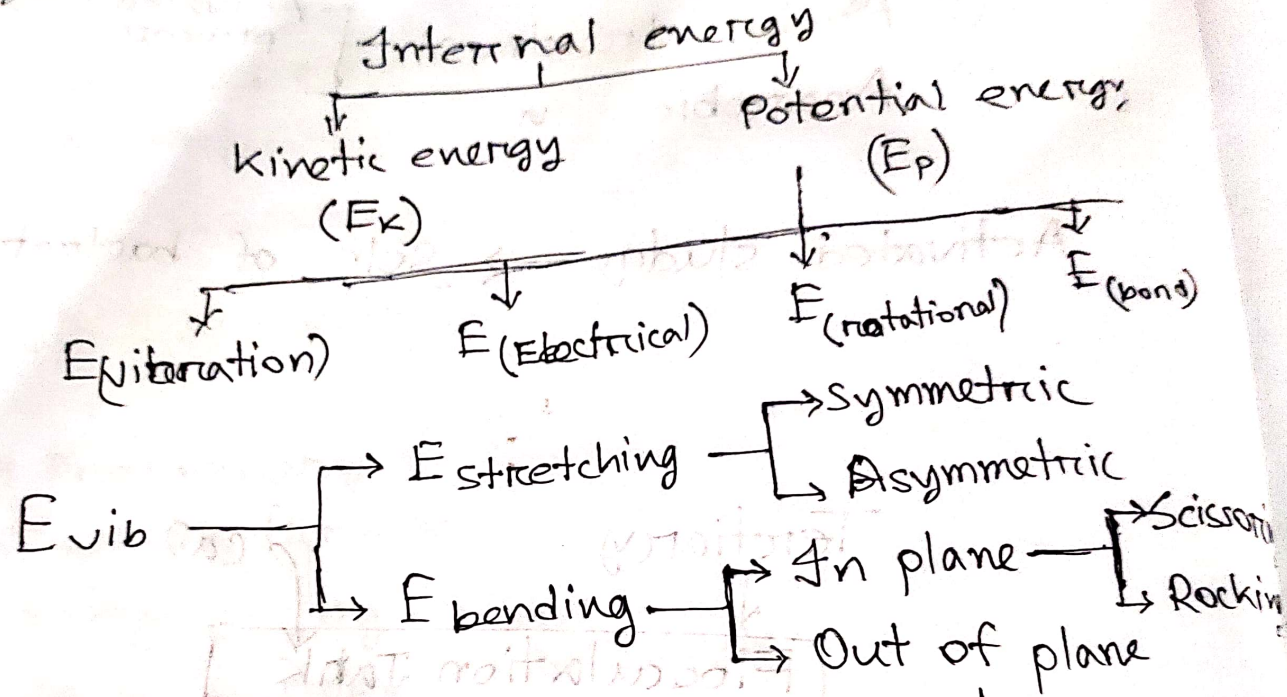 Internal energy
Kinetic energy
(EK)
Potential energy
(EP)
E(vibration)
E(Electrical)
E(rotational)
E(bond)
E vib
E stretching
Symmetric
Asymmetric
E bending
In plane
Scissori
Rockin
Out of plane